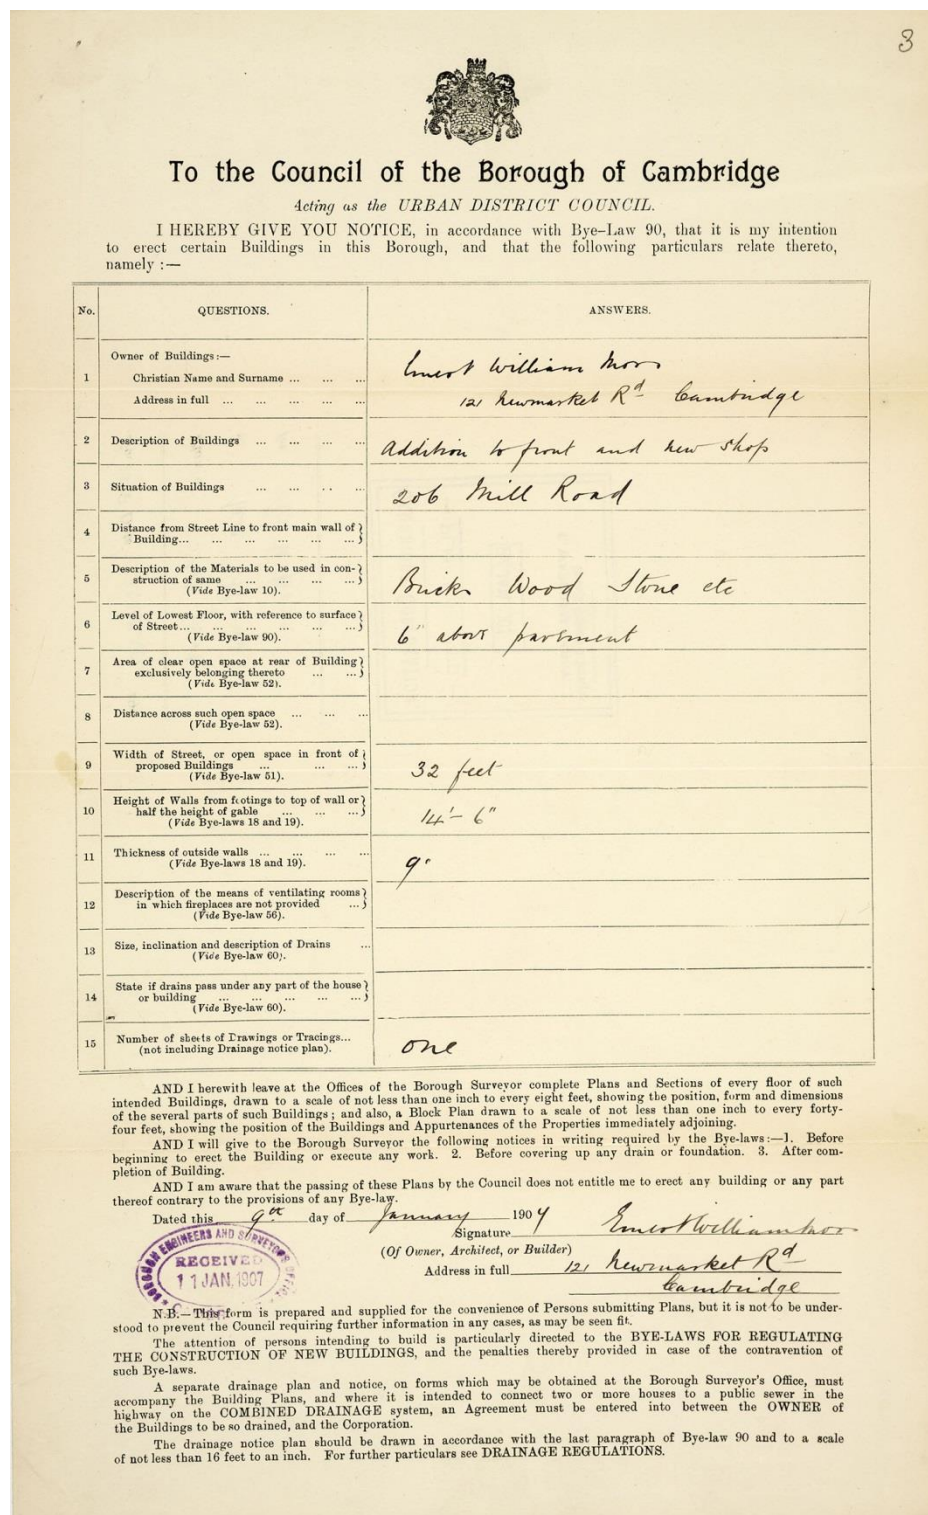 3
To the Council of the Borough of Cambridge
Acting as the URBAN DISTRICT COUNCIL.
I HEREBY GIVE YOU NOTICE, in accordance with Bye-Law 90, that it is my intention
to erect certain Buildings in this Borough, and that the following particulars relate thereto,
namely :—
No. QUESTIONS. ANSWERS.
Owner of Buildings:—
1 Christian Name and Surname ... ... ... Ernest William Morr
Address in full ... ... ... ... ... 121 Newmarket Rd Cambridge
2 Description of Buildings ... ... ... ... Addition to front and new shop
3 Situation of Buildings ... ... .. ... 206 Mill Road
4 Distance from Street Line to front main wall of
Building... ... ... ... ... ...
5 Description of the Materials to be used in con-
struction of same ... ... ... ... Bricks Wood Stone etc
(Vide Bye-law 10).
6 Level of Lowest Floor, with reference to surface
of Street... ... ... ... ... ... 6" above pavement
(Vide Bye-law 90).
7 Area of clear open space at rear of Building
exclusively belonging thereto ... ...
(Vide Bye-law 52).
8 Distance across such open space ... ... ...
(Vide Bye-law 52).
9 Width of Street, or open space in front of
proposed Buildings ... ... ... 32 feet
(Vide Bye-law 51).
10 Height of Walls from footings to top of wall or
half the height of gable ... ... ... 14'- 6"
(Vide Bye-laws 18 and 19).
11 Thickness of outside walls ... ... ... ... 9"
(Vide Bye-laws 18 and 19).
12 Description of the means of ventilating rooms
in which fireplaces are not provided ...
(Vide Bye-law 56).
13 Size, inclination and description of Drains ...
(Vide Bye-law 60).
14 State if drains pass under any part of the house
or building ... ... ... ... ...
(Vide Bye-law 60).
15 Number of sheets of Drawings or Tracings...
(not including Drainage notice plan). one
AND I herewith leave at the Offices of the Borough Surveyor complete Plans and Sections of every floor of such
intended Buildings, drawn to a scale of not less than one inch to every eight feet, showing the position, form and dimensions
of the several parts of such Buildings; and also, a Block Plan drawn to a scale of not less than one inch to every forty-
four feet, showing the position of the Buildings and Appurtenances of the Properties immediately adjoining.
AND I will give to the Borough Surveyor the following notices in writing required by the Bye-laws:—1. Before
beginning to erect the Building or execute any work. 2. Before covering up any drain or foundation. 3. After com-
pletion of Building.
AND I am aware that the passing of these Plans by the Council does not entitle me to erect any building or any part
thereof contrary to the provisions of any Bye-law.
Dated this 9th day of January 1907
Signature Ernest William Morr
(Of Owner, Architect, or Builder)
Address in full 121 Newmarket Rd
Cambridge
BOROUGH ENGINEERS AND SURVEYORS OFFICE
RECEIVED
11 JAN. 1907
N.B.—This form is prepared and supplied for the convenience of Persons submitting Plans, but it is not to be under-
stood to prevent the Council requiring further information in any cases, as may be seen fit.
The attention of persons intending to build is particularly directed to the BYE-LAWS FOR REGULATING
THE CONSTRUCTION OF NEW BUILDINGS, and the penalties thereby provided in case of the contravention of
such Bye-laws.
A separate drainage plan and notice, on forms which may be obtained at the Borough Surveyor's Office, must
accompany the Building Plans, and where it is intended to connect two or more houses to a public sewer in the
highway on the COMBINED DRAINAGE system, an Agreement must be entered into between the OWNER of
the Buildings to be so drained, and the Corporation.
The drainage notice plan should be drawn in accordance with the last paragraph of Bye-law 90 and to a scale
of not less than 16 feet to an inch. For further particulars see DRAINAGE REGULATIONS.